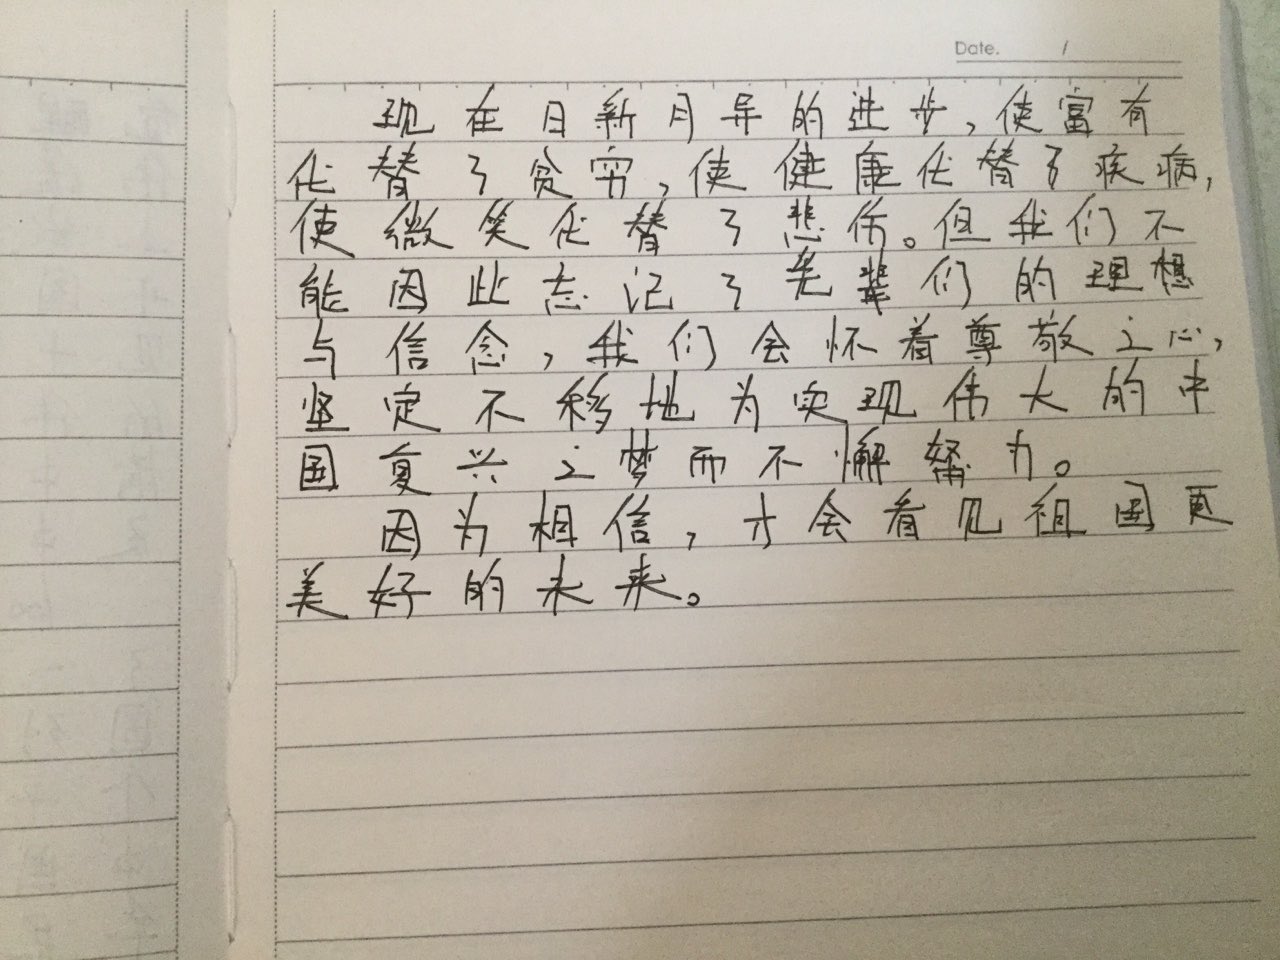 Date. /
现在日新月异的进步,使富有
代替了贫穷,使健康代替了疾病,
使微笑代替了悲伤。但我们不
能因此忘记了先辈们的理想
与信念,我们会怀着尊敬之心,
坚定不移地为实现伟大的中
国复兴之梦而不懈努力。
因为相信,才会看见祖国更
美好的未来。